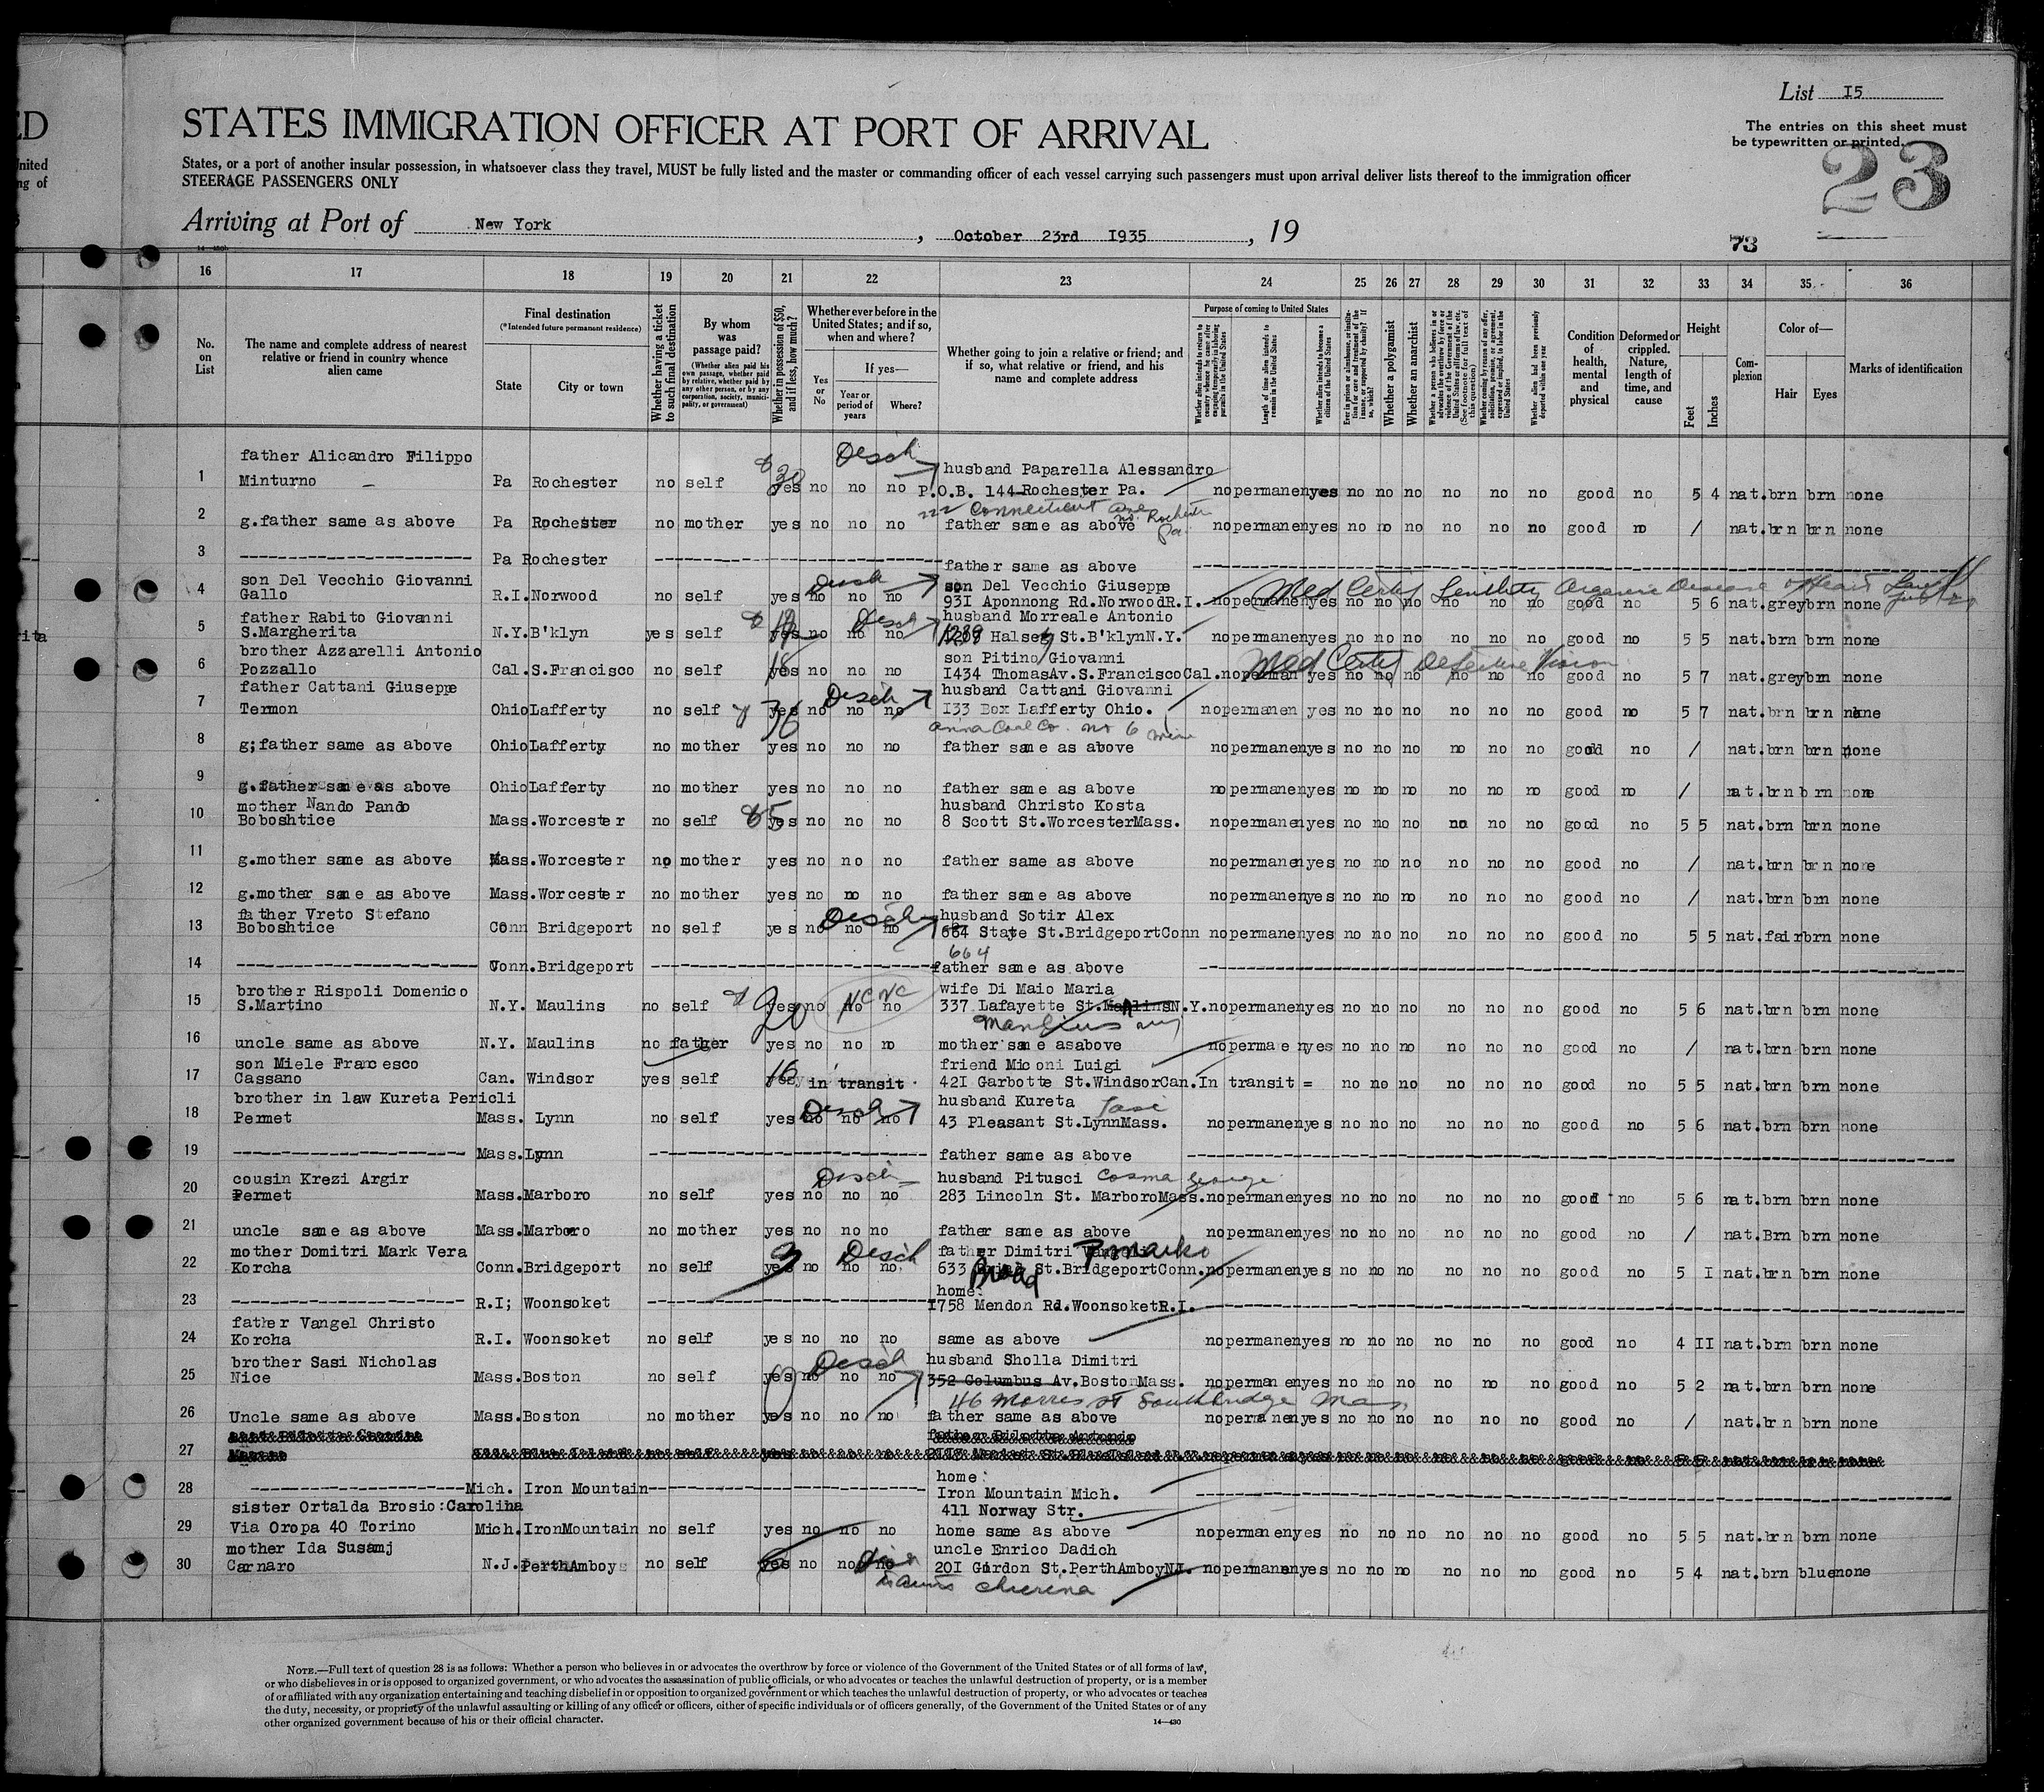 List I5
ED
STATES IMMIGRATION OFFICER AT PORT OF ARRIVAL
The entries on this sheet must
be typewritten or printed.
United
ng of
States, or a port of another insular possession, in whatsoever class they travel, MUST be fully listed and the master or commanding officer of each vessel carrying such passengers must upon arrival deliver lists thereof to the immigration officer
STEERAGE PASSENGERS ONLY
23
Arriving at Port of New York, October 23rd I935, 19
73
16 17 18 19 20 21 22 23 24 25 26 27 28 29 30 31 32 33 34 35 36
No. on List
The name and complete address of nearest relative or friend in country whence alien came
Final destination
(*Intended future permanent residence)
State
City or town
Whether having a ticket to such final destination
By whom was passage paid?
(Whether alien paid his own passage, whether paid by relative, whether paid by any other person, or by any corporation, society, municipality, or government)
Whether in possession of $50, and if less, how much?
Whether ever before in the United States; and if so, when and where?
Yes or No
If yes—
Year or period of years
Where?
Whether going to join a relative or friend; and if so, what relative or friend, and his name and complete address
Purpose of coming to United States
Whether alien intends to return to country whence he came after engaging temporarily in laboring pursuits in the United States
Length of time alien intends to remain in the United States
Whether alien intends to become a citizen of the United States
Whether a polygamist
Whether an anarchist
Condition of health, mental and physical
Deformed or crippled. Nature, length of time, and cause
Height
Feet
Inches
Complexion
Color of—
Hair
Eyes
Marks of identification
father Alicandro Filippo $30 Desch husband Paparella Alessandro
1 Minturno Pa Rochester no self yes no no no P.O.B. 144 Rochester Pa. no permanen yes no no no no no no good no 5 4 nat. brn brn none
222 Connecticut ave Rochester Pa.
2 g.father same as above Pa Rochester no mother yes no no no father same as above no permanen yes no no no no no no good no / nat. brn brn none
3 Pa Rochester father same as above
son Del Vecchio Giovanni Desch son Del Vecchio Giuseppe Med Certif Senility Organic Disease of Heart
4 Gallo R.I. Norwood no self yes no no no 93I Aponnong Rd.Norwood R.I. no permanen yes no no no no no no good no 5 6 nat. grey brn none
father Rabito Giovanni Desch husband Morreale Antonio
5 S.Margherita N.Y. B'klyn yes self yes no no no 1289 Halsey St.B'klyn N.Y. no permanen yes no no no no no no good no 5 5 nat. brn brn none
brother Azzarelli Antonio son Pitino Giovanni Med Certif Defective Vision
6 Pozzallo Cal. S.Francisco no self 18 yes no no no I434 Thomas Av.S.Francisco Cal. no perman yes no no no no no no good no 5 7 nat. grey brn none
father Cattani Giuseppe Desch husband Cattani Giovanni
7 Termon Ohio Lafferty no self 36 yes no no no I33 Box Lafferty Ohio. no permanen yes no no no no no no good no 5 7 nat. brn brn none
anna Coal Co. no 6 mine
8 g;father same as above Ohio Lafferty no mother yes no no no father same as above no permanen yes no no no no no no good no / nat. brn brn none
9 g.father same as above Ohio Lafferty no mother yes no no no father same as above no permanen yes no no no no no no good no / nat. brn brn none
mother Nando Pando $5 husband Christo Kosta
10 Boboshtice Mass. Worcester no self yes no no no 8 Scott St.Worcester Mass. no permanen yes no no no no no no good no 5 5 nat. brn brn none
11 g.mother same as above Mass. Worcester no mother yes no no no father same as above no permanen yes no no no no no no good no / nat. brn brn none
12 g.mother same as above Mass. Worcester no mother yes no no no father same as above no permanen yes no no no no no no good no / nat. brn brn none
father Vreto Stefano Desch husband Sotir Alex
13 Boboshtice Conn Bridgeport no self yes no no no 664 State St.Bridgeport Conn no permanen yes no no no no no no good no 5 5 nat. fair brn none
664
14 Conn. Bridgeport father same as above
brother Rispoli Domenico wife Di Maio Maria
15 S.Martino N.Y. Maulins no self $20 yes no no no NCNC 337 Lafayette St.Manlins N.Y. no permanen yes no no no no no no good no 5 6 nat. brn brn none
Manlius ny
16 uncle same as above N.Y. Maulins no father yes no no no mother same as above no permanen yes no no no no no no good no / nat. brn brn none
son Miele Francesco friend Miconi Luigi
17 Cassano Can. Windsor yes self 16 in transit 42I Garbotte St.Windsor Can. In transit = no no no no no no good no 5 5 nat. brn brn none
brother in law Kureta Pericli Desch husband Kureta Tasi
18 Permet Mass. Lynn no self yes no no no 43 Pleasant St.Lynn Mass. no permanen yes no no no no no no good no 5 6 nat. brn brn none
19 Mass. Lynn father same as above
cousin Krezi Argir Desch husband Pitusci Cosma George
20 Permet Mass. Marboro no self yes no no no 283 Lincoln St. Marboro Mass. no permanen yes no no no no no no good no 5 6 nat. brn brn none
21 uncle same as above Mass. Marboro no mother yes no no no father same as above no permanen yes no no no no no no good no / nat. Brn brn none
mother Domitri Mark Vera Desch father Dimitri
22 Korcha Conn. Bridgeport no self yes no no no 633 Broad St.Bridgeport Conn. no permanen yes no no no no no no good no 5 I nat. brn brn none
home:
23 R.I; Woonsoket I758 Mendon Rd.Woonsoket R.I.
father Vangel Christo
24 Korcha R.I. Woonsoket no self yes no no no same as above no permanen yes no no no no no no good no 4 II nat. brn brn none
brother Sasi Nicholas Desch husband Sholla Dimitri
25 Nice Mass. Boston no self yes no no no 352 Columbus Av.Boston Mass. no permanen yes no no no no no no good no 5 2 nat. brn brn none
46 Morris st Southbridge Mas.
26 Uncle same as above Mass. Boston no mother yes no no no father same as above no permanen yes no no no no no no good no / nat. brn brn none
27
home:
28 Mich. Iron Mountain Iron Mountain Mich.
sister Ortalda Brosio:Carolina 411 Norway Str.
29 Via Oropa 40 Torino Mich. Iron Mountain no self yes no no no home same as above no permanen yes no no no no no no good no 5 5 nat. brn brn none
mother Ida Susamj uncle Enrico Dadich
30 Carnaro N.J. Perth Amboy no self yes no no no 20I Gordon St.Perth Amboy NJ. no permanen yes no no no no no no good no 5 4 nat. brn blue none
NOTE.—Full text of question 28 is as follows: Whether a person who believes in or advocates the overthrow by force or violence of the Government of the United States or of all forms of law,
or who disbelieves in or is opposed to organized government, or who advocates the assassination of public officials, or who advocates or teaches the unlawful destruction of property, or is a member
of or affiliated with any organization entertaining and teaching disbelief in or opposition to organized government or which teaches the unlawful destruction of property, or who advocates or teaches
the duty, necessity, or propriety of the unlawful assaulting or killing of any officer or officers, either of specific individuals or of officers generally, of the Government of the United States or of any
other organized government because of his or their official character.
14—430